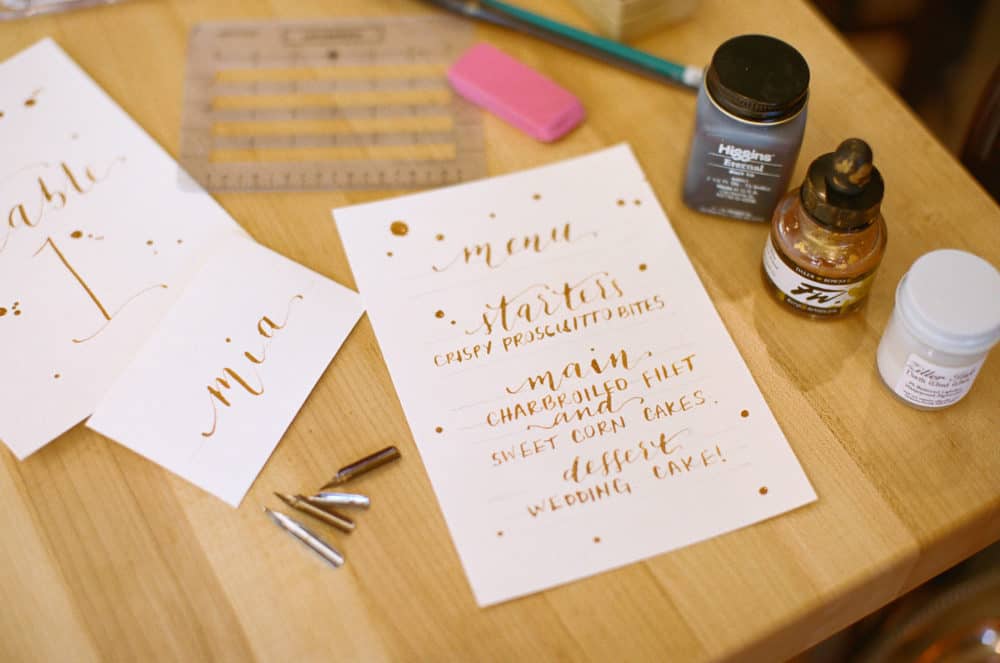 able
1
mia
menu
starters
CRISPY PROSCIUTTO BITES
main
CHARBROILED FILET
and
SWEET CORN CAKES.
dessert
WEDDING CAKE!
Higgins
Eternal
FW